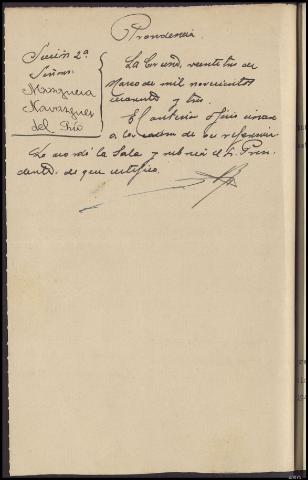 Providencia
Sección 2ª
Señores
Mosquera
Navazques
del Río
La Coruña, veintitres de
Marzo de mil novecientos
cuarenta y tres.
El anterior oficio unase
a los autos de su referencia
Lo acordó la Sala y rubrica el Sr. Presi-
dente. de que certifico.